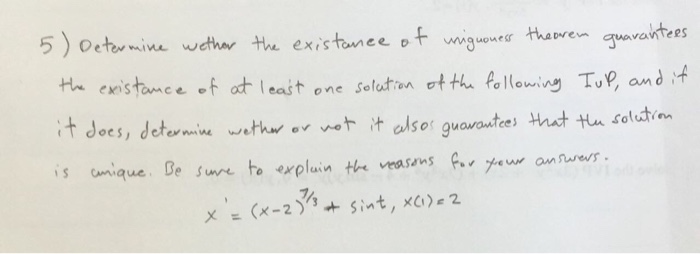 5) Determine wether the existance of uniquoness theorem guarantees
the existance of at least one solution of the following IVP, and if
it does, determine wether or not it also guarantees that the solution
is unique. Be sure to explain the reasons for your answers.
x' = (x-2)^{7/3} + sint, x(1) = 2